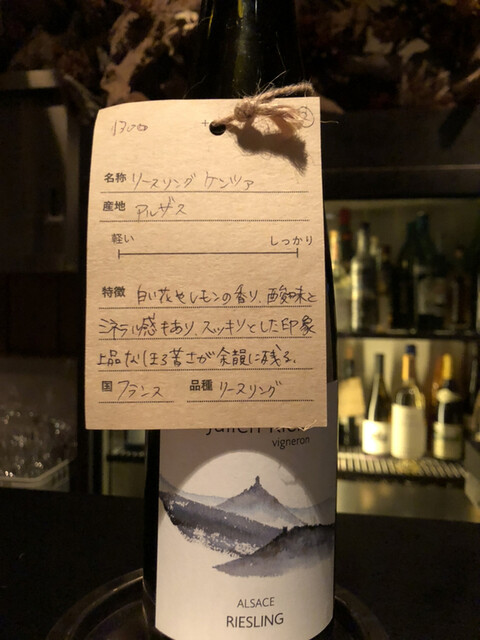 1300
名称 リースリング ケンツァ
産地 アルザス
軽い しっかり
特徴 白い花やレモンの香り、酸味と
ミネラル感もあり、スッキリとした印象
上品なほろ苦さが余韻に残る。
国 フランス 品種 リースリング
vigneron
ALSACE
RIESLING